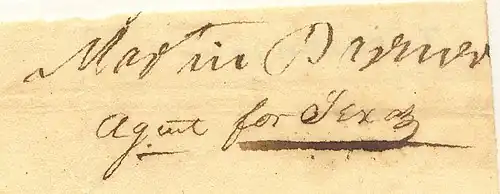 Martin Parmer
Agent for Texas